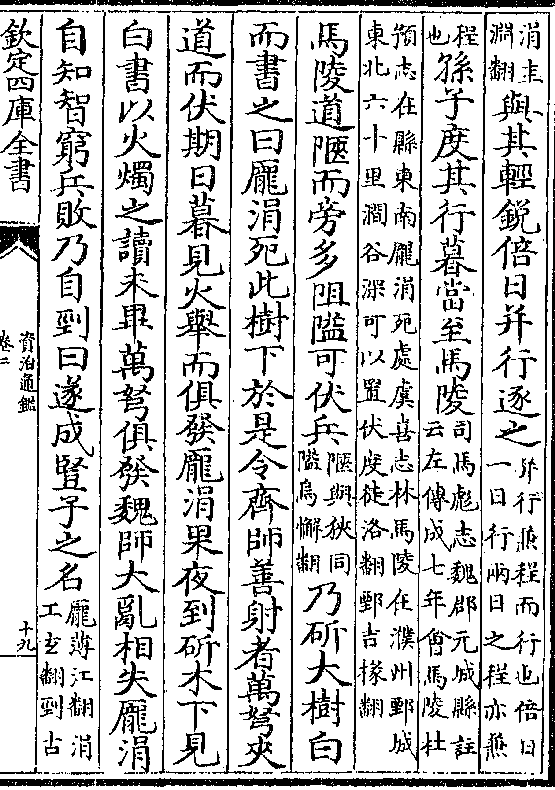 涓圭淵翻與其輕銳倍日并行逐之并行兼程而行也倍日一日行兩日之程亦兼
程也孫子度其行暮當至馬陵司馬彪志魏郡元城縣註云左傳成七年會馬陵杜
預志在縣東南龐涓死處虞喜志林馬陵在濮州鄄城東北六十里澗谷深可以置伏度徒洛翻鄄吉掾翻
馬陵道陿而旁多阻隘可伏兵陿與狹同隘烏懈翻乃斫大樹白
而書之曰龐涓死此樹下於是令齊師善射者萬弩夾
道而伏期日暮見火舉而俱發龐涓果夜到斫木下見
白書以火燭之讀未畢萬弩俱發魏師大亂相失龐涓
自知智窮兵敗乃自剄曰遂成豎子之名龐薄江翻涓工玄翻剄古
欽定四庫全書
資治通鑑
卷二
十九